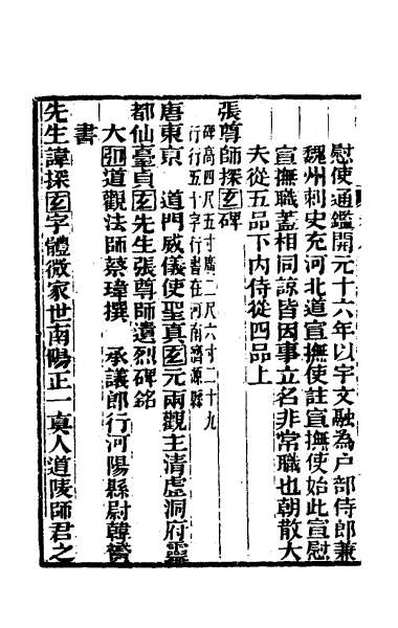 慰使通鑑開元十六年以宇文融為户部侍郎兼
魏州刺史充河北道宣撫使註宣撫使始此宣慰
宣撫職蓋相同諒皆因事立名非常職也朝散大
夫從五品下内侍從四品上
張尊師探玄碑
碑高四尺五寸廣二尺六寸二十九
行行五十字行書在河南濟源縣
唐東京　道門威儀使聖真玄元兩觀主清虛洞府靈
都仙臺貞玄先生張尊師遺烈碑銘
大弘道觀法師蔡瑋撰　承議郎行河陽縣尉韓
書
先生諱探玄字體微家世南陽正一真人道陵師君之